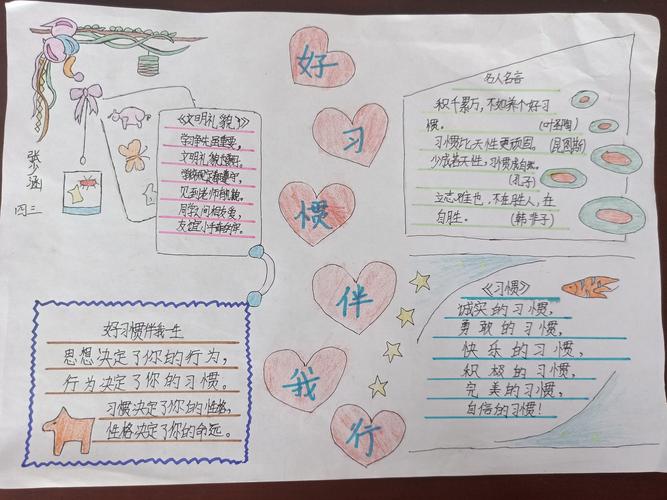 好
习
惯
伴
我
行
张涵
四三
《文明礼貌》
学习争先虽重要,
文明礼貌
见到老师
同学之间相友爱,
友谊小手
名人名言
积千累万,不如养个好习
惯。
(叶圣陶)
习惯比天性更顽固。(昆图斯)
少成若天性,习惯
(孔子)
立志难也,不在胜人,在
自胜。
(韩非子)
好习惯伴我一生
思想决定了你的行为,
行为决定了你的习惯。
习惯决定了你的性格,
性格决定了你的命运。
《习惯》
诚实的习惯,
勇敢的习惯,
快乐的习惯,
积极的习惯,
完美的习惯,
自信的习惯!